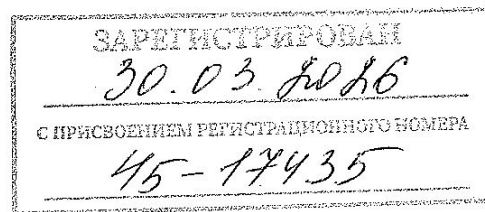 ЗАРЕГИСТРИРОВАН
30.03.2026
С ПРИСВОЕНИЕМ РЕГИСТРАЦИОННОГО НОМЕРА
45-17435